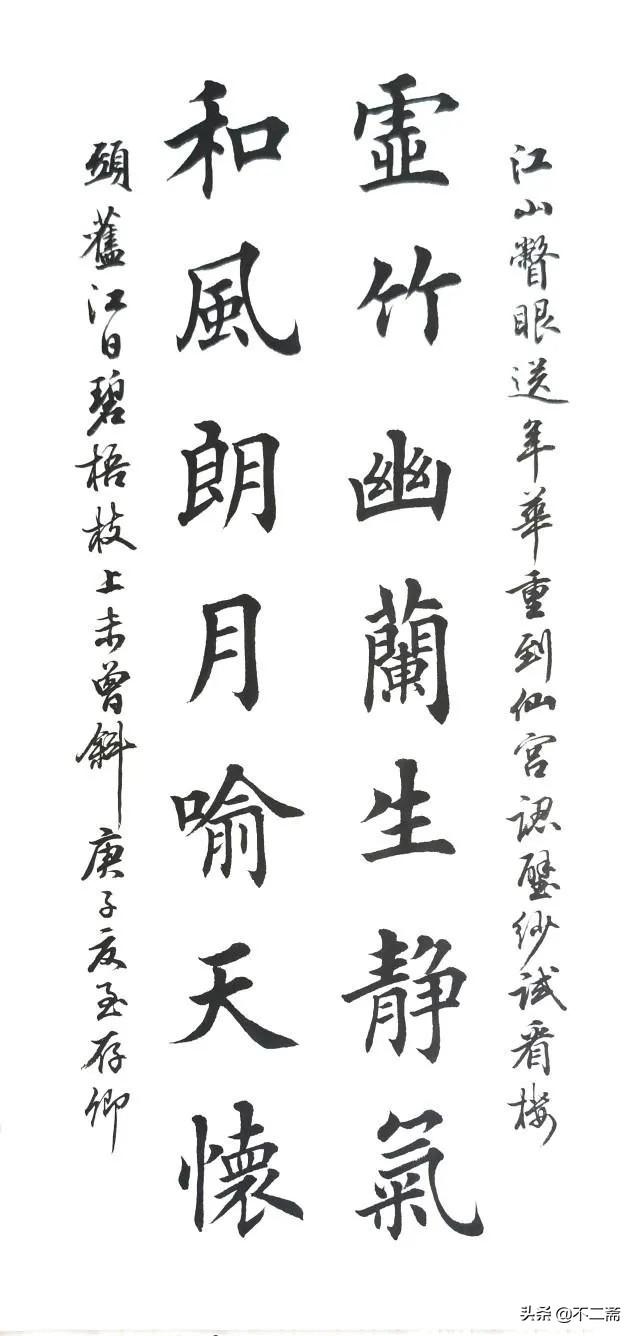 江山瞥眼送年華重到仙宮認壁紗試看樓
虛竹幽蘭生静氣
和風朗月喻天懷
頭舊江日碧梧枝上未曾斜 庚子夏至存卿
头条 @不二斋